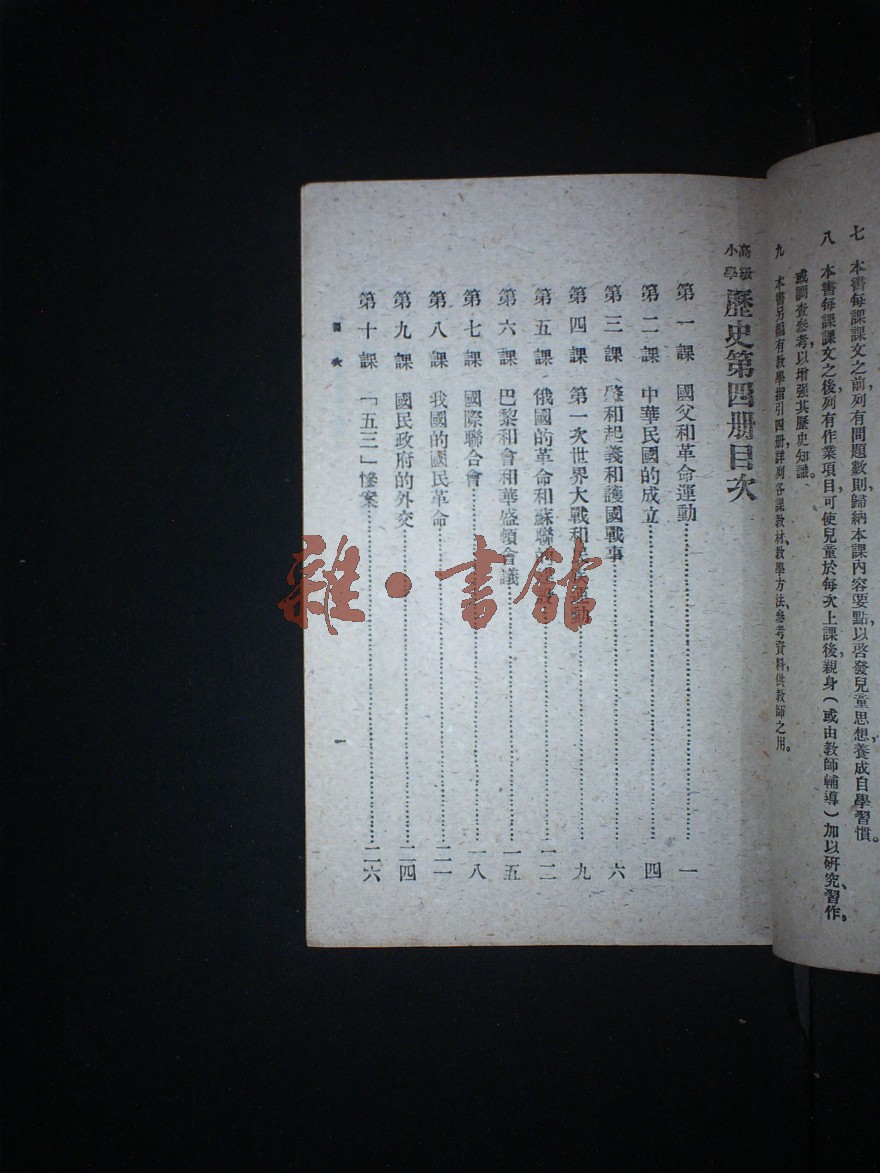 七 本書每課課文之前,列有問題數則歸納本課內容要點,以啓發兒童思想,養成自學習慣。
八 本書每課課文之後列有作業項目可使兒童於每次上課後親身(或由教師輔導)加以研究、習作,
或調查參考以增強其歷史知識。
九 本書另編有教學指引四册,詳列各課教材、教學方法、參考資料,供教師之用。
高級小學 歷史第四册目次
第一課 國父和革命運動 一
第二課 中華民國的成立 四
第三課 肇和起義和護國戰事 六
第四課 第一次世界大戰和民族運動 九
第五課 俄國的革命和蘇聯的 一二
第六課 巴黎和會和華盛頓會議 一五
第七課 國際聯合會 一八
第八課 我國的國民革命 二一
第九課 國民政府的外交 二四
第十課 「五三」慘案 二六
目次
一
雜·書館